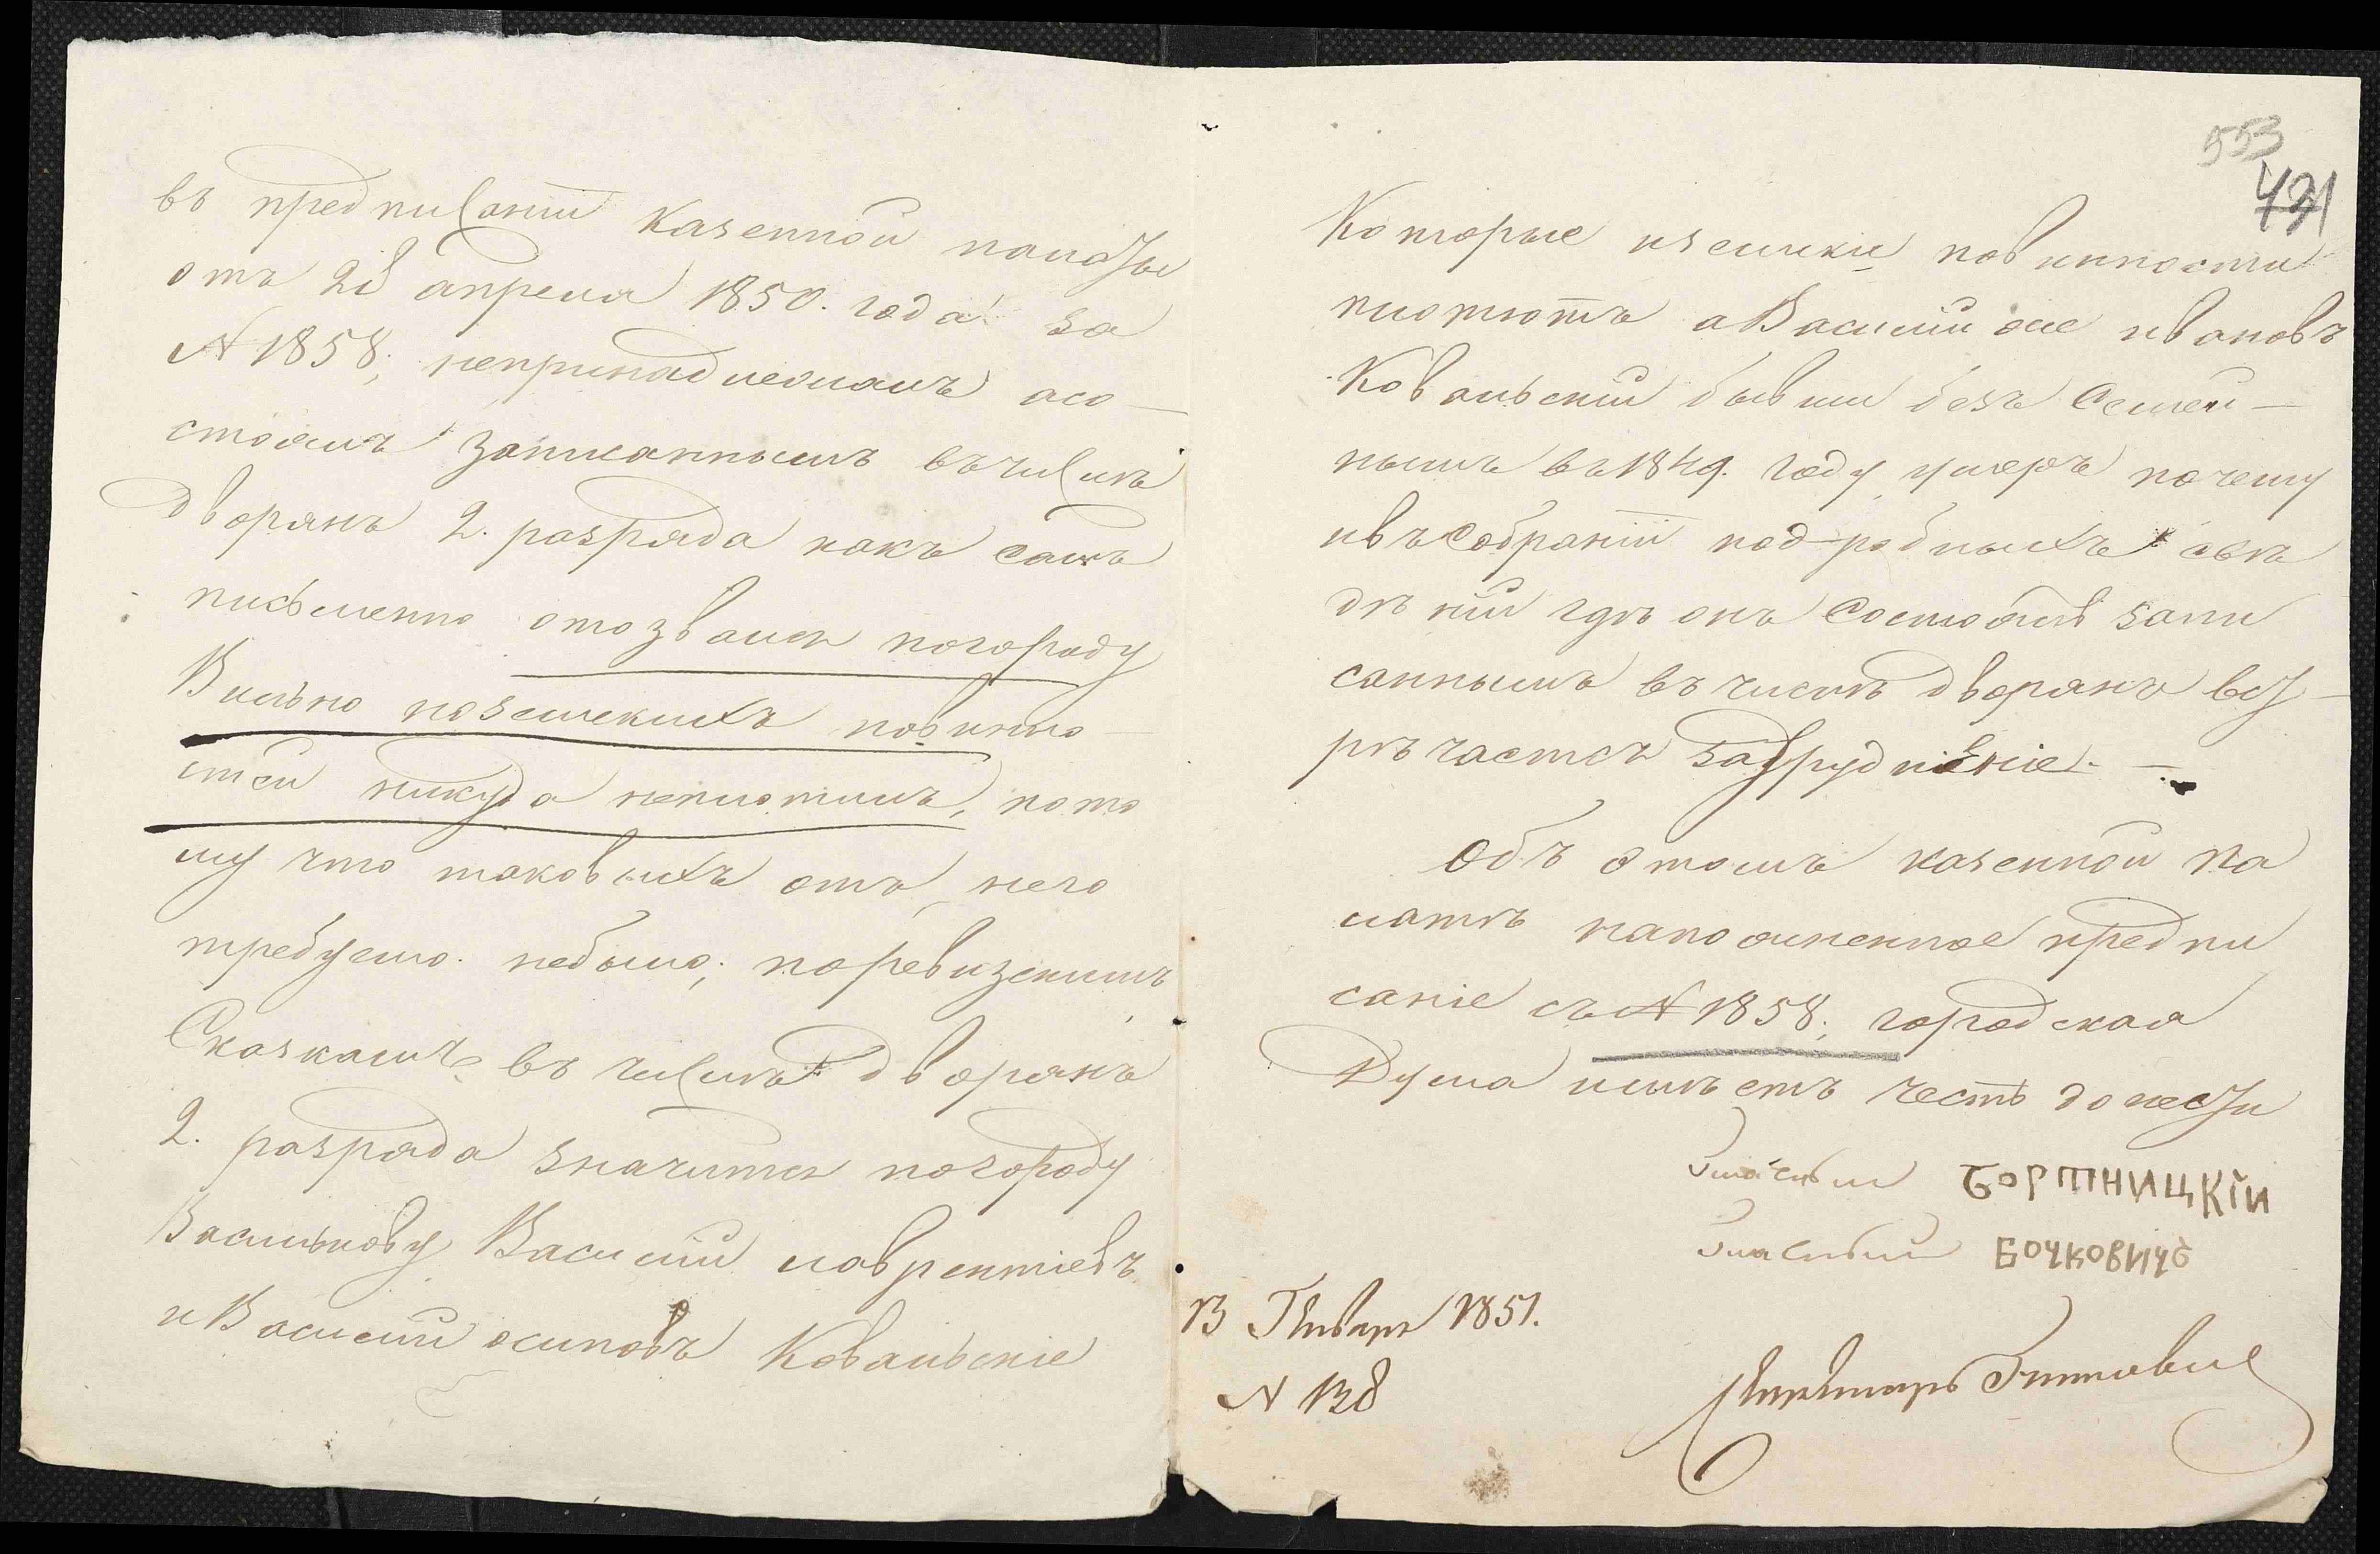 въ предписаніи Казенной палаты
отъ 28 апреля 1850. года за
№ 1858, непринадлежалъ асо-
стоялъ записаннымъ въ числѣ
дворянъ 2. разряда какъ самъ
письменно отозвался погороду
Вильно поземскихъ повинно-
стей никуда неплотилъ, пото
му что таковыхъ отъ него
требуемо небыло; поревизскимъ
Сказкамъ въ числѣ дворянъ
2. разряда значится погороду
Василькову Василій лаврентіевъ
и Василій осиповъ Ковальскіе
553
431
Которые иземскіе повинности
плотютъ а Василій же ивановъ
Ковальскій бывши безъ Семей-
нымъ въ 1849. году умеръ почему
ивъ Собраніи под-робныхъ свѣ
дѣній гдѣ онъ Состоялъ запи
саннымъ въ числѣ дворянъ вст-
рѣчается затрудненіе. —
Объ этомъ казенной па
латѣ напомненное предпи
саніе съ № 1858; городская
Дума имѣетъ честь донести
Гласный Бортницкій
Гласный Бочковичъ
13 Января 1851.
№ 138
Секретарь